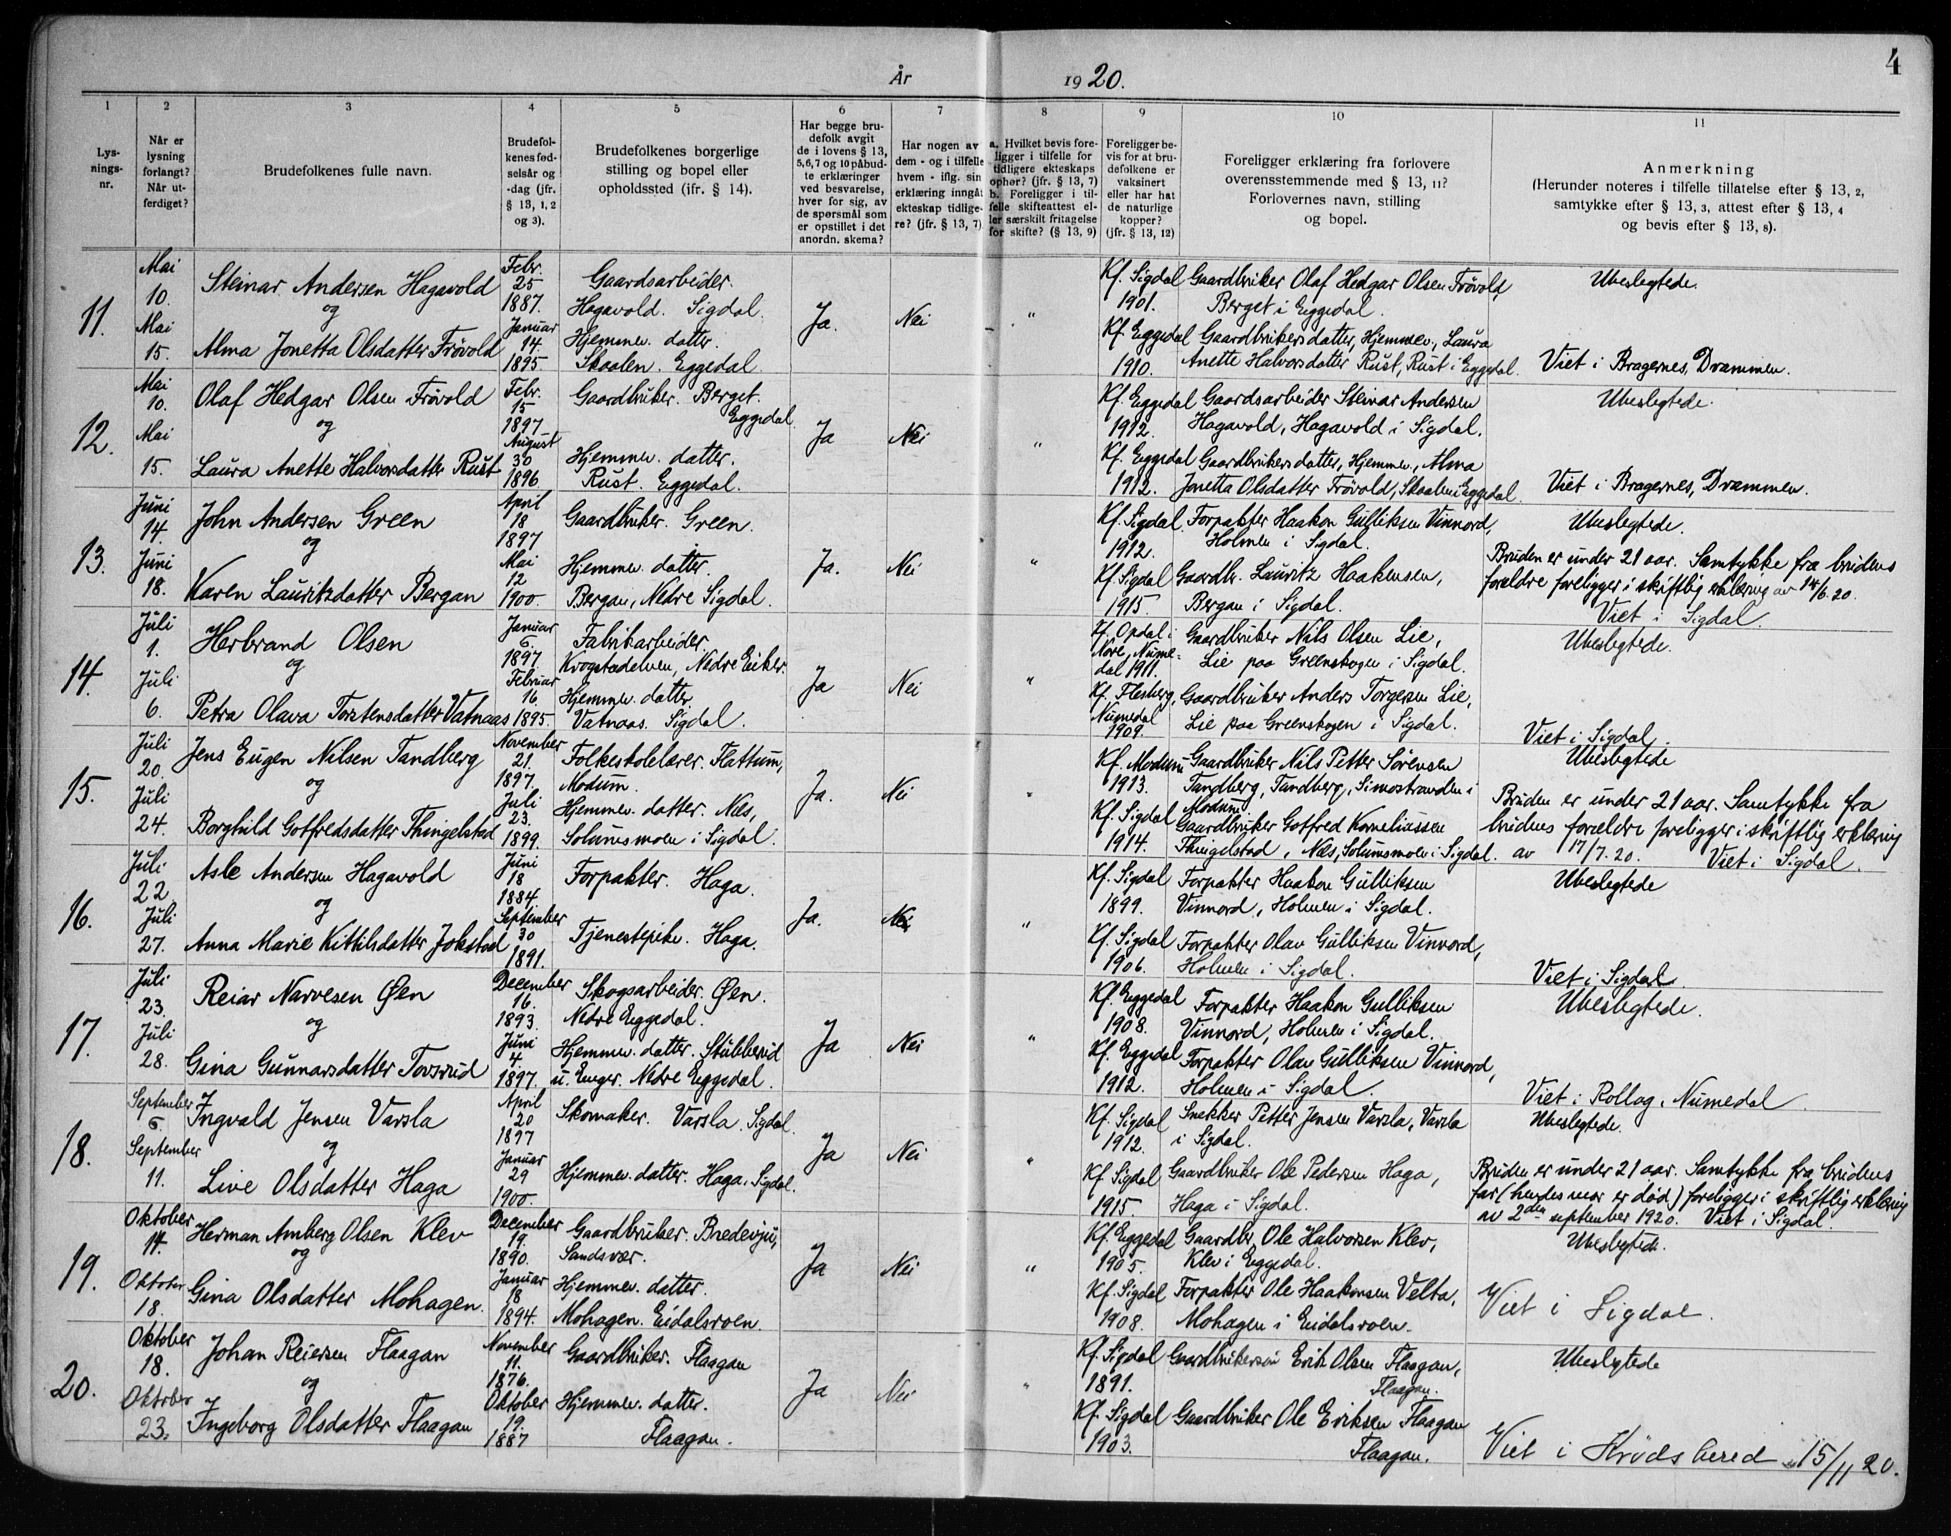 År 1920.
4
1
2
3
4
5
6
7
8
9
10
11
Lys-
nings-
nr.
Når er
lysning
forlangt?
Når ut-
ferdiget?
Brudefolkenes fulle navn.
Brudefol-
kenes fød-
selsår og
-dag (jfr.
§ 13, 1, 2
og 3).
Brudefolkenes borgerlige
stilling og bopel eller
opholdssted (ifr. § 14).
Har begge bru-
defolk avgit
de i lovens § 13,
5,6,7 og 10 påbud-
te erklæringer
ved besvarelse,
hver for sig, av
de spørsmål som
er opstillet i det
anordn. skema?
Har nogen av
dem - og i tilfelle
hvem - iflg. sin
erklæring inngåt
ekteskap tidlige-
re? (jfr. § 13, 7)
a. Hvilket bevis fore-
ligger i tilfelle for
tidligere ekteskaps
ophør? (jfr. § 13, 7)
b. Foreligger i til-
felle skifteattest el-
ler særskilt fritagelse
for skifte? (§ 13, 9)
Foreligger be-
vis for at bru-
defolkene er
vaksinert
eller har hat
de naturlige
kopper?
(jfr. § 13, 12)
Foreligger erklæring fra forlovere
overensstemmende med § 13, 11?
Forlovernes navn, stilling
og bopel.
Anmerkning
(Herunder noteres i tilfelle tillatelse efter § 13, 2,
samtykke efter § 13, 3, attest efter § 13, 4
og bevis efter § 13, 8).
11.
Mai
10.
Mai
15.
Steinar Andersen Hagavold
og
Alma Jonetta Olsdatter Frøvold
Febr.
25
1887.
Januar
14.
1895
Gaardsarbeider.
Hagavold. Sigdal.
Hjemmev. datter.
Skaalen. Eggedal
Ja.
Nei
"
Kf. Sigdal
1901.
Kf. Eggedal
1910.
Gaardbruker Olaf Hedgar Olsen Frøvold,
Berget i Eggedal.
Gaardbrukersdatter, Hjemmev., Laura
Anette Halvorsdatter Rust, Rust i Eggedal.
Ubeslegtede.
Viet i Bragernes, Drammen.
12.
Mai
10.
Mai
15.
Olaf Hedgar Olsen Frøvold
og
Laura Anette Halvorsdatter Rust
Febr.
15
1897
August
30
1896
Gaardbruker. Berget.
Eggedal.
Hjemmev. datter.
Rust. Eggedal.
Ja
Nei
"
Kf. Eggedal
1912.
Kf. Eggedal
1912.
Gaardsarbeider Steinar Andersen
Hagavold, Hagavold i Sigdal.
Gaardbrukersdatter, Hjemmev., Alma
Jonetta Olsdatter Frøvold, Skaalen i Eggedal.
Ubeslegtede.
Viet i Bragernes, Drammen.
13.
Juni
14.
Juni
18.
John Andersen Green
og
Karen Lauritzdatter Bergan
April
18
1897
Mai
12
1900.
Gaardbruker. Green.
Hjemmev. datter.
Bergan, Nedre Sigdal.
Ja.
Nei
"
Kf. Sigdal
1912.
Kf. Sigdal
1915.
Forpakter Haakon Gulliksen Vinnord,
Holmen i Sigdal.
Gaardbr. Lauritz Haakensen,
Bergan i Sigdal.
Ubeslegtede.
Bruden er under 21 aar. Samtykke fra brudens
forældre foreligger i skriftlig erklæring av 14/6.20.
Viet i Sigdal.
14.
Juli
1.
Juli
6.
Herbrand Olsen
og
Petra Olava Torstensdatter Vatnaas
Januar
6.
1897.
Februar
16.
1895.
Fabrikarbeider.
Krogstadelven, Nedre Eiker.
Hjemmev. datter.
Vatnaas. Sigdal.
Ja
Nei
"
Kf. Opdal i
Nore, Nume-
dal 1911.
Kf. Flesberg,
Numedal
1909.
Gaardbruker Nils Olsen Lie,
Lie paa Greenskogen i Sigdal.
Gaardbruker Anders Torgersen Lie,
Lie paa Greenskogen i Sigdal.
Ubeslegtede.
Viet i Sigdal.
15.
Juli
20.
Juli
24.
Jens Eugen Nilsen Tandberg
og
Borghild Gotfredsdatter Thingelstad
November
21.
1897.
Juli
23.
1899.
Folkeskolelærer. Flattum,
Modum.
Hjemmev. datter. Næs,
Solumsmoen i Sigdal.
Ja.
Nei
"
Kf. Modum
1913.
Kf. Sigdal
1914.
Gaardbruker Nils Petter Sørensen
Tandberg, Tandberg, Simostranden i
Modum
Gaardbruker Gotfred Korneliussen
Thingelstad, Næs, Solumsmoen i Sigdal.
Ubeslegtede
Bruden er under 21 aar. Samtykke fra
brudens forældre foreligger i skriftlig erklæring
av 17/7.20. Viet i Sigdal.
16.
Juli
22
Juli
27.
Asle Andersen Hagavold
og
Anna Marie Kittilsdatter Jokstad
Juni
18
1884.
September
30
1891.
Forpakter. Haga.
Tjenestepike. Haga.
Ja.
Nei
"
Kf. Sigdal
1899.
Kf. Sigdal
1906.
Forpakter Haakon Gulliksen
Vinnord, Holmen i Sigdal.
Forpakter Olav Gulliksen Vinnord,
Holmen i Sigdal.
Ubeslegtede
Viet i Sigdal
17.
Juli
23.
Juli
28.
Reiar Narvesen Øen
og
Gina Gunnarsdatter Tovsrud
December
16.
1893.
Juni
4.
1897.
Skogsarbeider. Øen.
Nedre Eggedal.
Hjemmev. datter. Stubberud
u. Enger. Nedre Eggedal.
Ja
Nei
"
Kf. Eggedal
1908.
Kf. Eggedal
1912.
Forpakter Haakon Gulliksen
Vinnord, Holmen i Sigdal.
Forpakter Olav Gulliksen Vinnord,
Holmen i Sigdal.
Ubeslegtede.
Viet i Rollag, Numedal
18.
September
6.
September
11.
Ingvald Jensen Varsla
og
Live Olsdatter Haga
April
20
1897
Januar
29
1900.
Skomaker. Varsla. Sigdal.
Hjemmev. datter. Haga. Sigdal.
Ja
Nei
"
Kf. Sigdal
1912.
Kf. Sigdal
1915
Snekker Petter Jensen Varsla, Varsla
i Sigdal.
Gaardbruker Ole Pedersen Haga,
Haga i Sigdal.
Ubeslegtede.
Bruden er under 21 aar. Samtykke fra brudens
far (hendes mor er død) foreligger i skriftlig erklæring
av 2den september 1920. Viet i Sigdal.
19.
Oktober
14.
Oktober
18.
Herman Amberg Olsen Klev
og
Gina Olsdatter Mohagen.
December
19.
1890.
Januar
18
1894.
Gaardbruker. Bredevju,
Sandsvær.
Hjemmev. datter.
Mohagen. Eidalsroen.
Ja
Nei
"
Kf. Eggedal
1905.
Kf. Sigdal
1908.
Gaardbr. Ole Halvorsen Klev,
Klev i Eggedal.
Forpakter Ole Haakonsen Velta,
Mohagen i Eidalsroen.
Ubeslegtede.
Viet i Sigdal.
20.
Oktober
18.
Oktober
23.
Johan Reiersen Flaagan
og
Ingeborg Olsdatter Flaagan
November
11.
1876.
Oktober
19.
1887
Gaardbruker. Flaagan
Hjemmev. datter.
Flaagan.
Ja
Nei
"
Kf. Sigdal
1891.
Kf. Sigdal
1903.
Gaardbrukersøn Erik Olsen Flaagan,
Flaagan.
Gaardbruker Ole Eriksen Flaagan
Flaagan.
Ubeslegtede
Viet i Krødsherred 15/11 20.